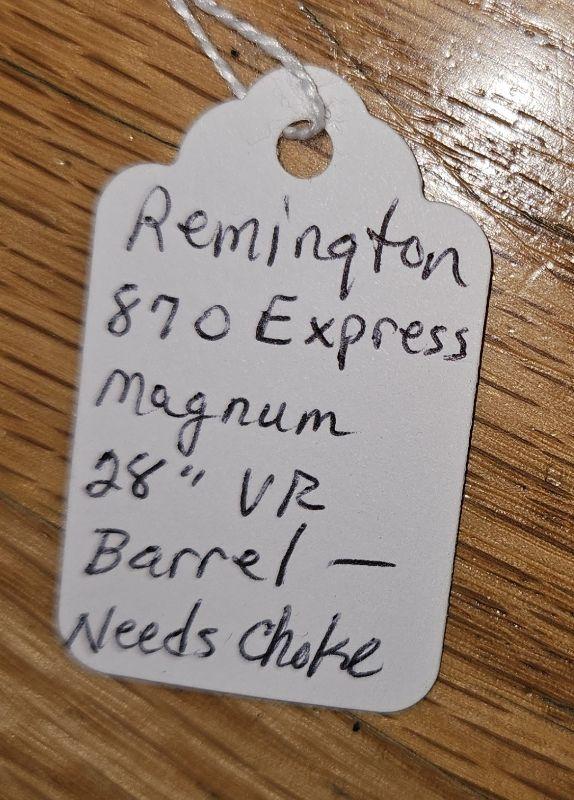 Remington
870 Express
Magnum
28" VR
Barrel —
Needs Choke